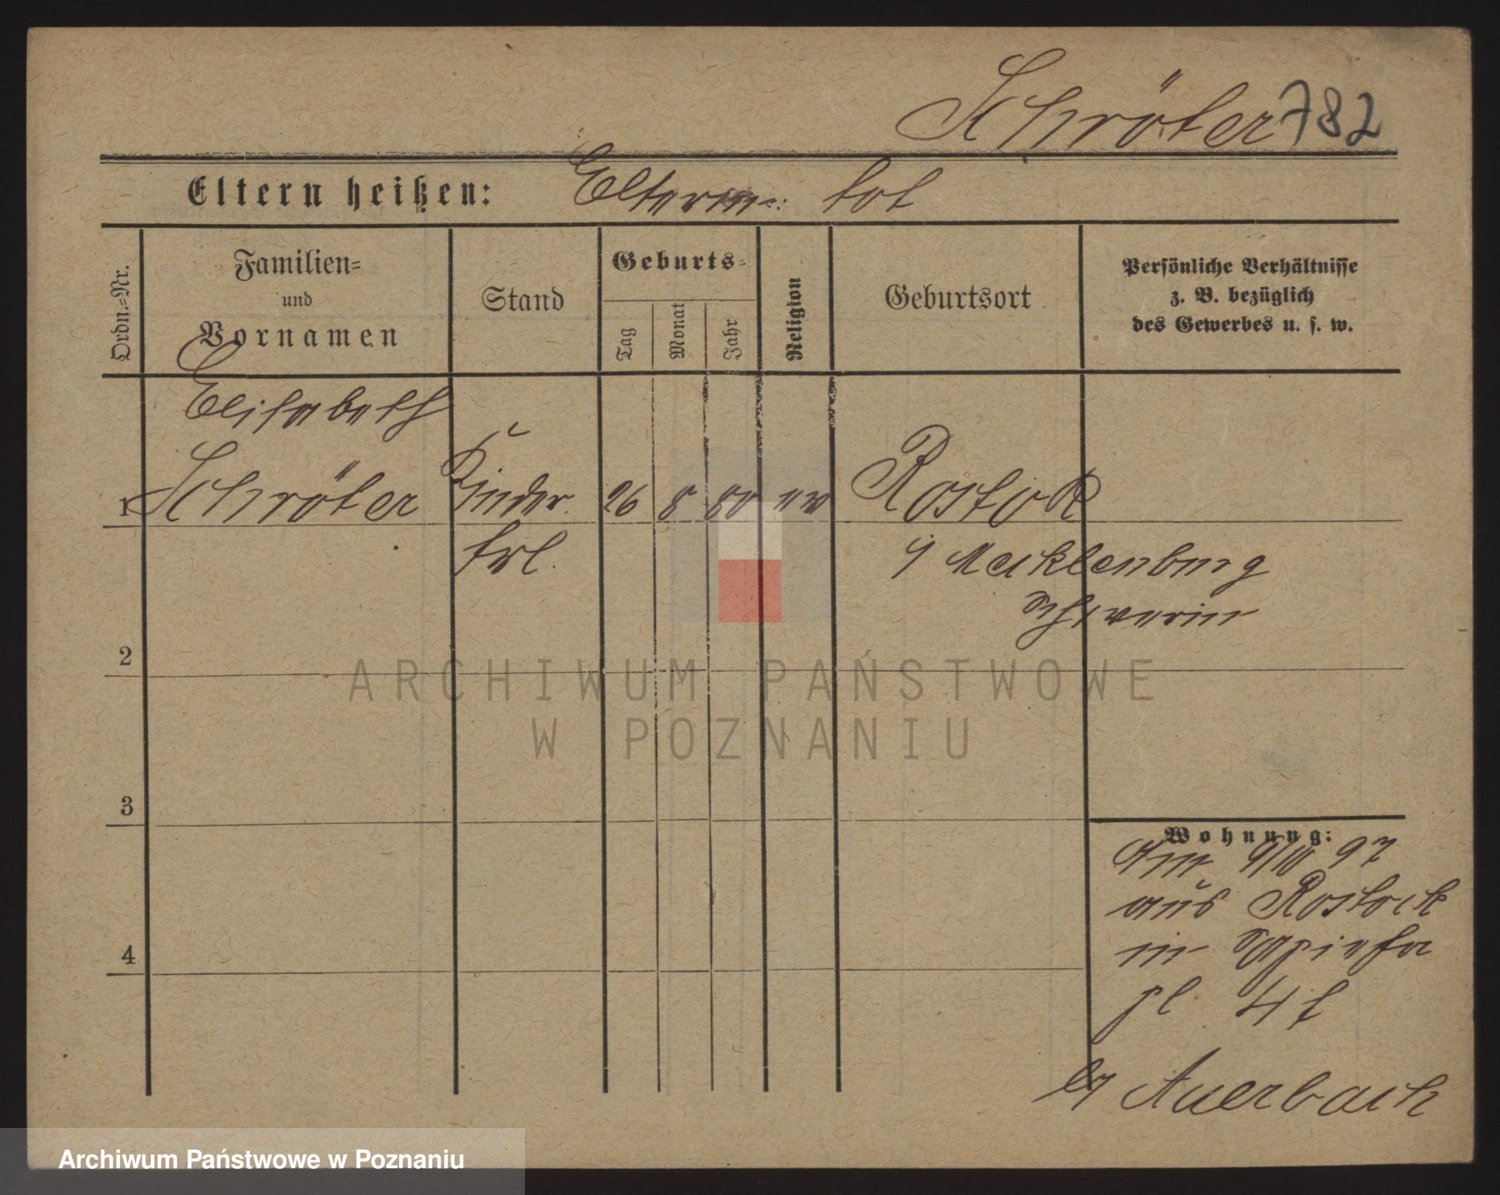 Schröter 782
Eltern heißen: Eltern tot
Ordn.=Nr.
Familien=
und
Vornamen
Stand
Geburts=
Tag
Monat
Jahr
Religion
Geburtsort
Persönliche Verhältnisse
z. B. bezüglich
des Gewerbes u. s. w.
Elisabeth
1 Schröter Kinder 26 8 80 ev Rostok
frl.
Mecklenburg
Schwerin
2
ARCHIWUM PAŃSTWOWE
W POZNANIU
3
Wohnung:
97
aus Rostock
in Sapieha
pl 4
4
by Auerbach
Archiwum Państwowe w Poznaniu